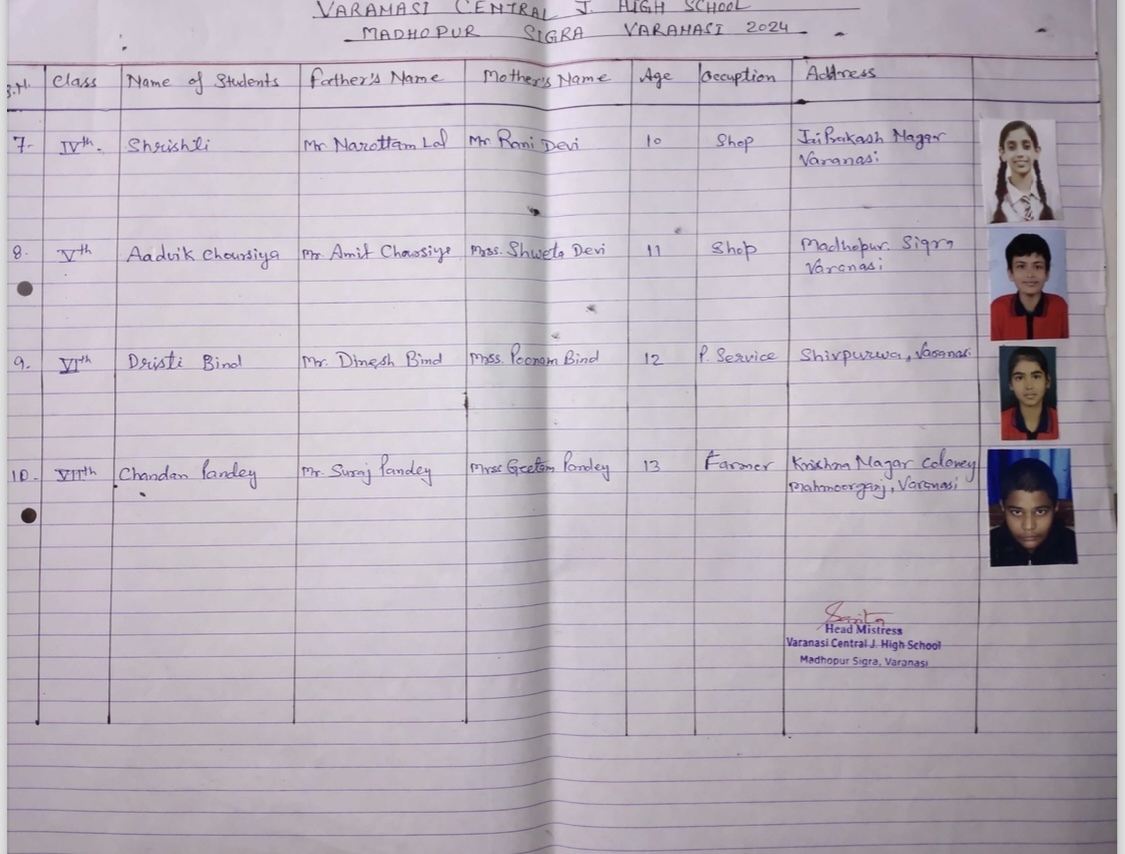 VARANASI CENTRAL J. HIGH SCHOOL
MADHOPUR SIGRA VARANASI 2024
S.N. Class Name of Students Father's Name Mother's Name Age Occuption Address
7- IVth. Shrishti Mr. Narottam Lal Mr. Rani Devi 10 Shop Jai Prakash Nagar
Varanasi
8. Vth Aadvik Chourasiya Mr. Amit Chowsiye Mrss. Shweta Devi 11 Shop Madhopur. Sigra
Varanasi
9. VIth Dristi Bind Mr. Dinesh Bind Mrss. Poonam Bind 12 P. Service Shivpurwa, Varanasi
10. VIIth Chandan Pandey Mr. Suraj Pandey Mrss Geetam Pandey 13 Farmer Krishna Nagar Coloney
Mahmoorganj, Varanasi
Sarita
Head Mistress
Varanasi Central J. High School
Madhopur Sigra, Varanasi